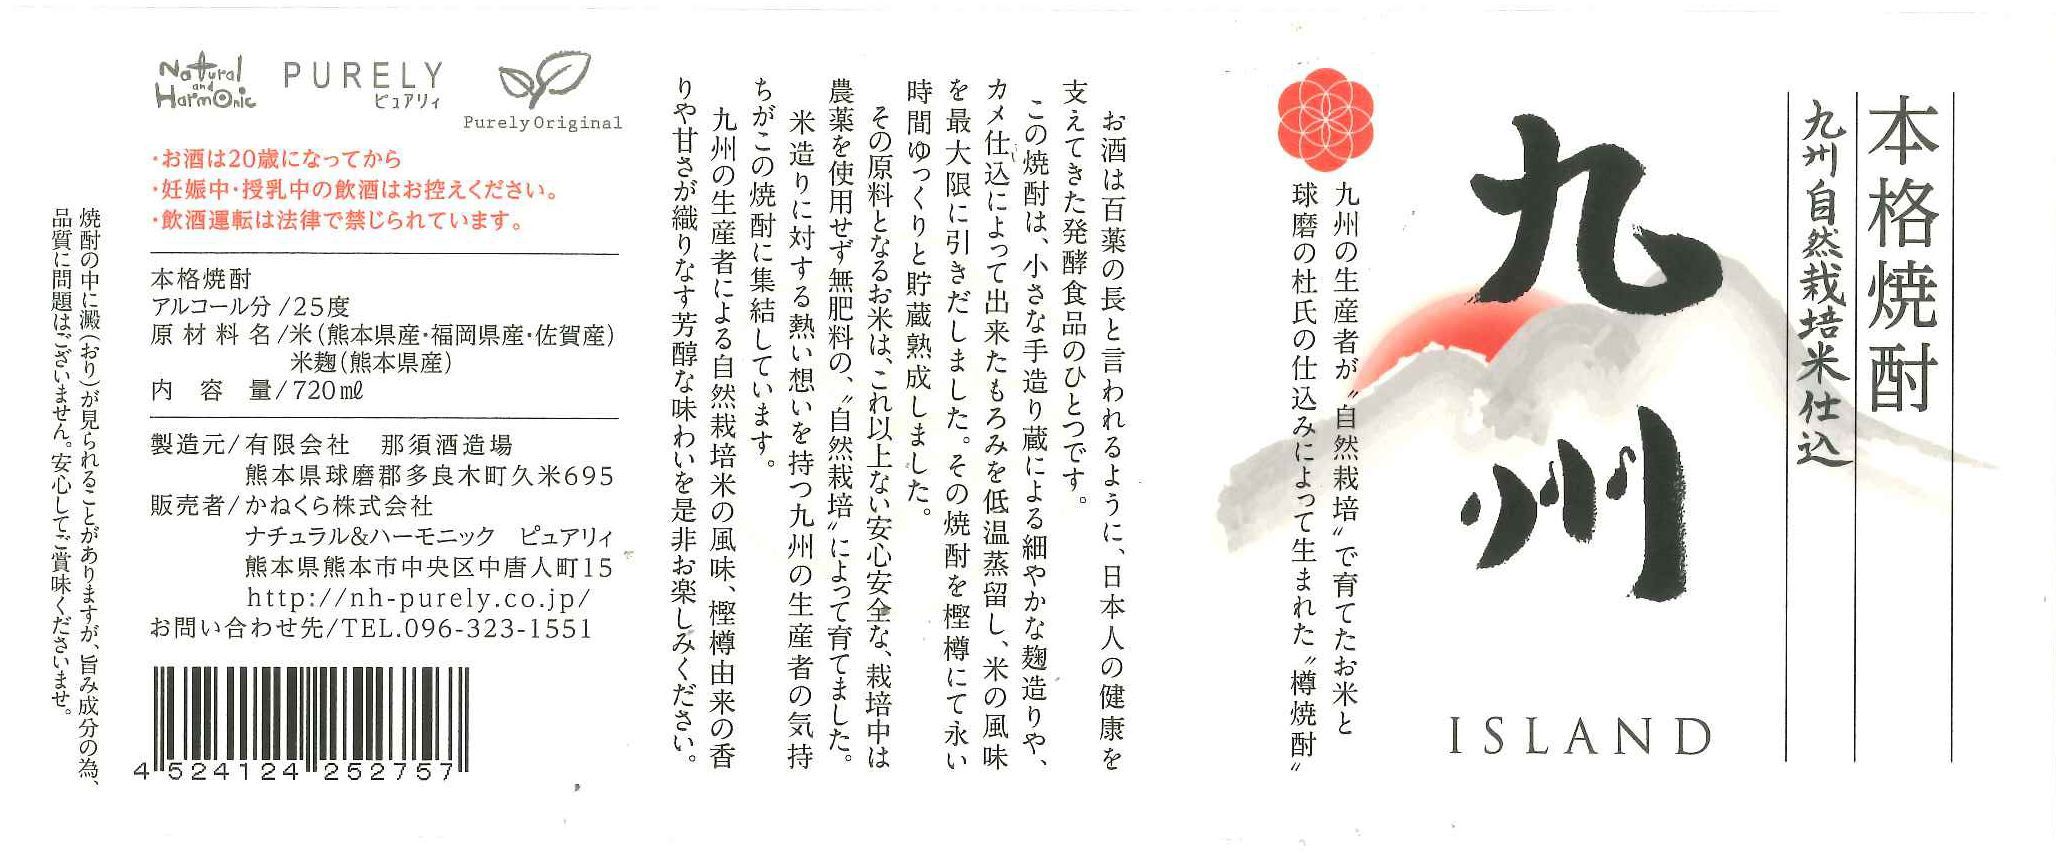 本格焼酎
九州自然栽培米仕込
九州
ISLAND
九州の生産者が〝自然栽培〟で育てたお米と
球磨の杜氏の仕込みによって生まれた〝樽焼酎〟
お酒は百薬の長と言われるように、日本人の健康を
支えてきた発酵食品のひとつです。
この焼酎は、小さな手造り蔵による細やかな麹造りや、
カメ仕込によって出来たもろみを低温蒸留し、米の風味
を最大限に引きだしました。その焼酎を樫樽にて永い
時間ゆっくりと貯蔵熟成しました。
その原料となるお米は、これ以上ない安心安全な、栽培中は
農薬を使用せず無肥料の、〝自然栽培〟によって育てました。
米造りに対する熱い想いを持つ九州の生産者の気持
ちがこの焼酎に集結しています。
九州の生産者による自然栽培米の風味、樫樽由来の香
りや甘さが織りなす芳醇な味わいを是非お楽しみください。
Natural and Harmonic
PURELY
ピュアリィ
Purely Original
・お酒は20歳になってから
・妊娠中・授乳中の飲酒はお控えください。
・飲酒運転は法律で禁じられています。
本格焼酎
アルコール分/25度
原材料名/米(熊本県産・福岡県産・佐賀産)
米麹(熊本県産)
内容量/720㎖
製造元/有限会社 那須酒造場
熊本県球磨郡多良木町久米695
販売者/かねくら株式会社
ナチュラル&ハーモニック ピュアリィ
熊本県熊本市中央区中唐人町15
http://nh-purely.co.jp/
お問い合わせ先/TEL.096-323-1551
4 524124 252757
焼酎の中に澱(おり)が見られることがありますが、旨み成分の為、
品質に問題はございません。安心してご賞味くださいませ。